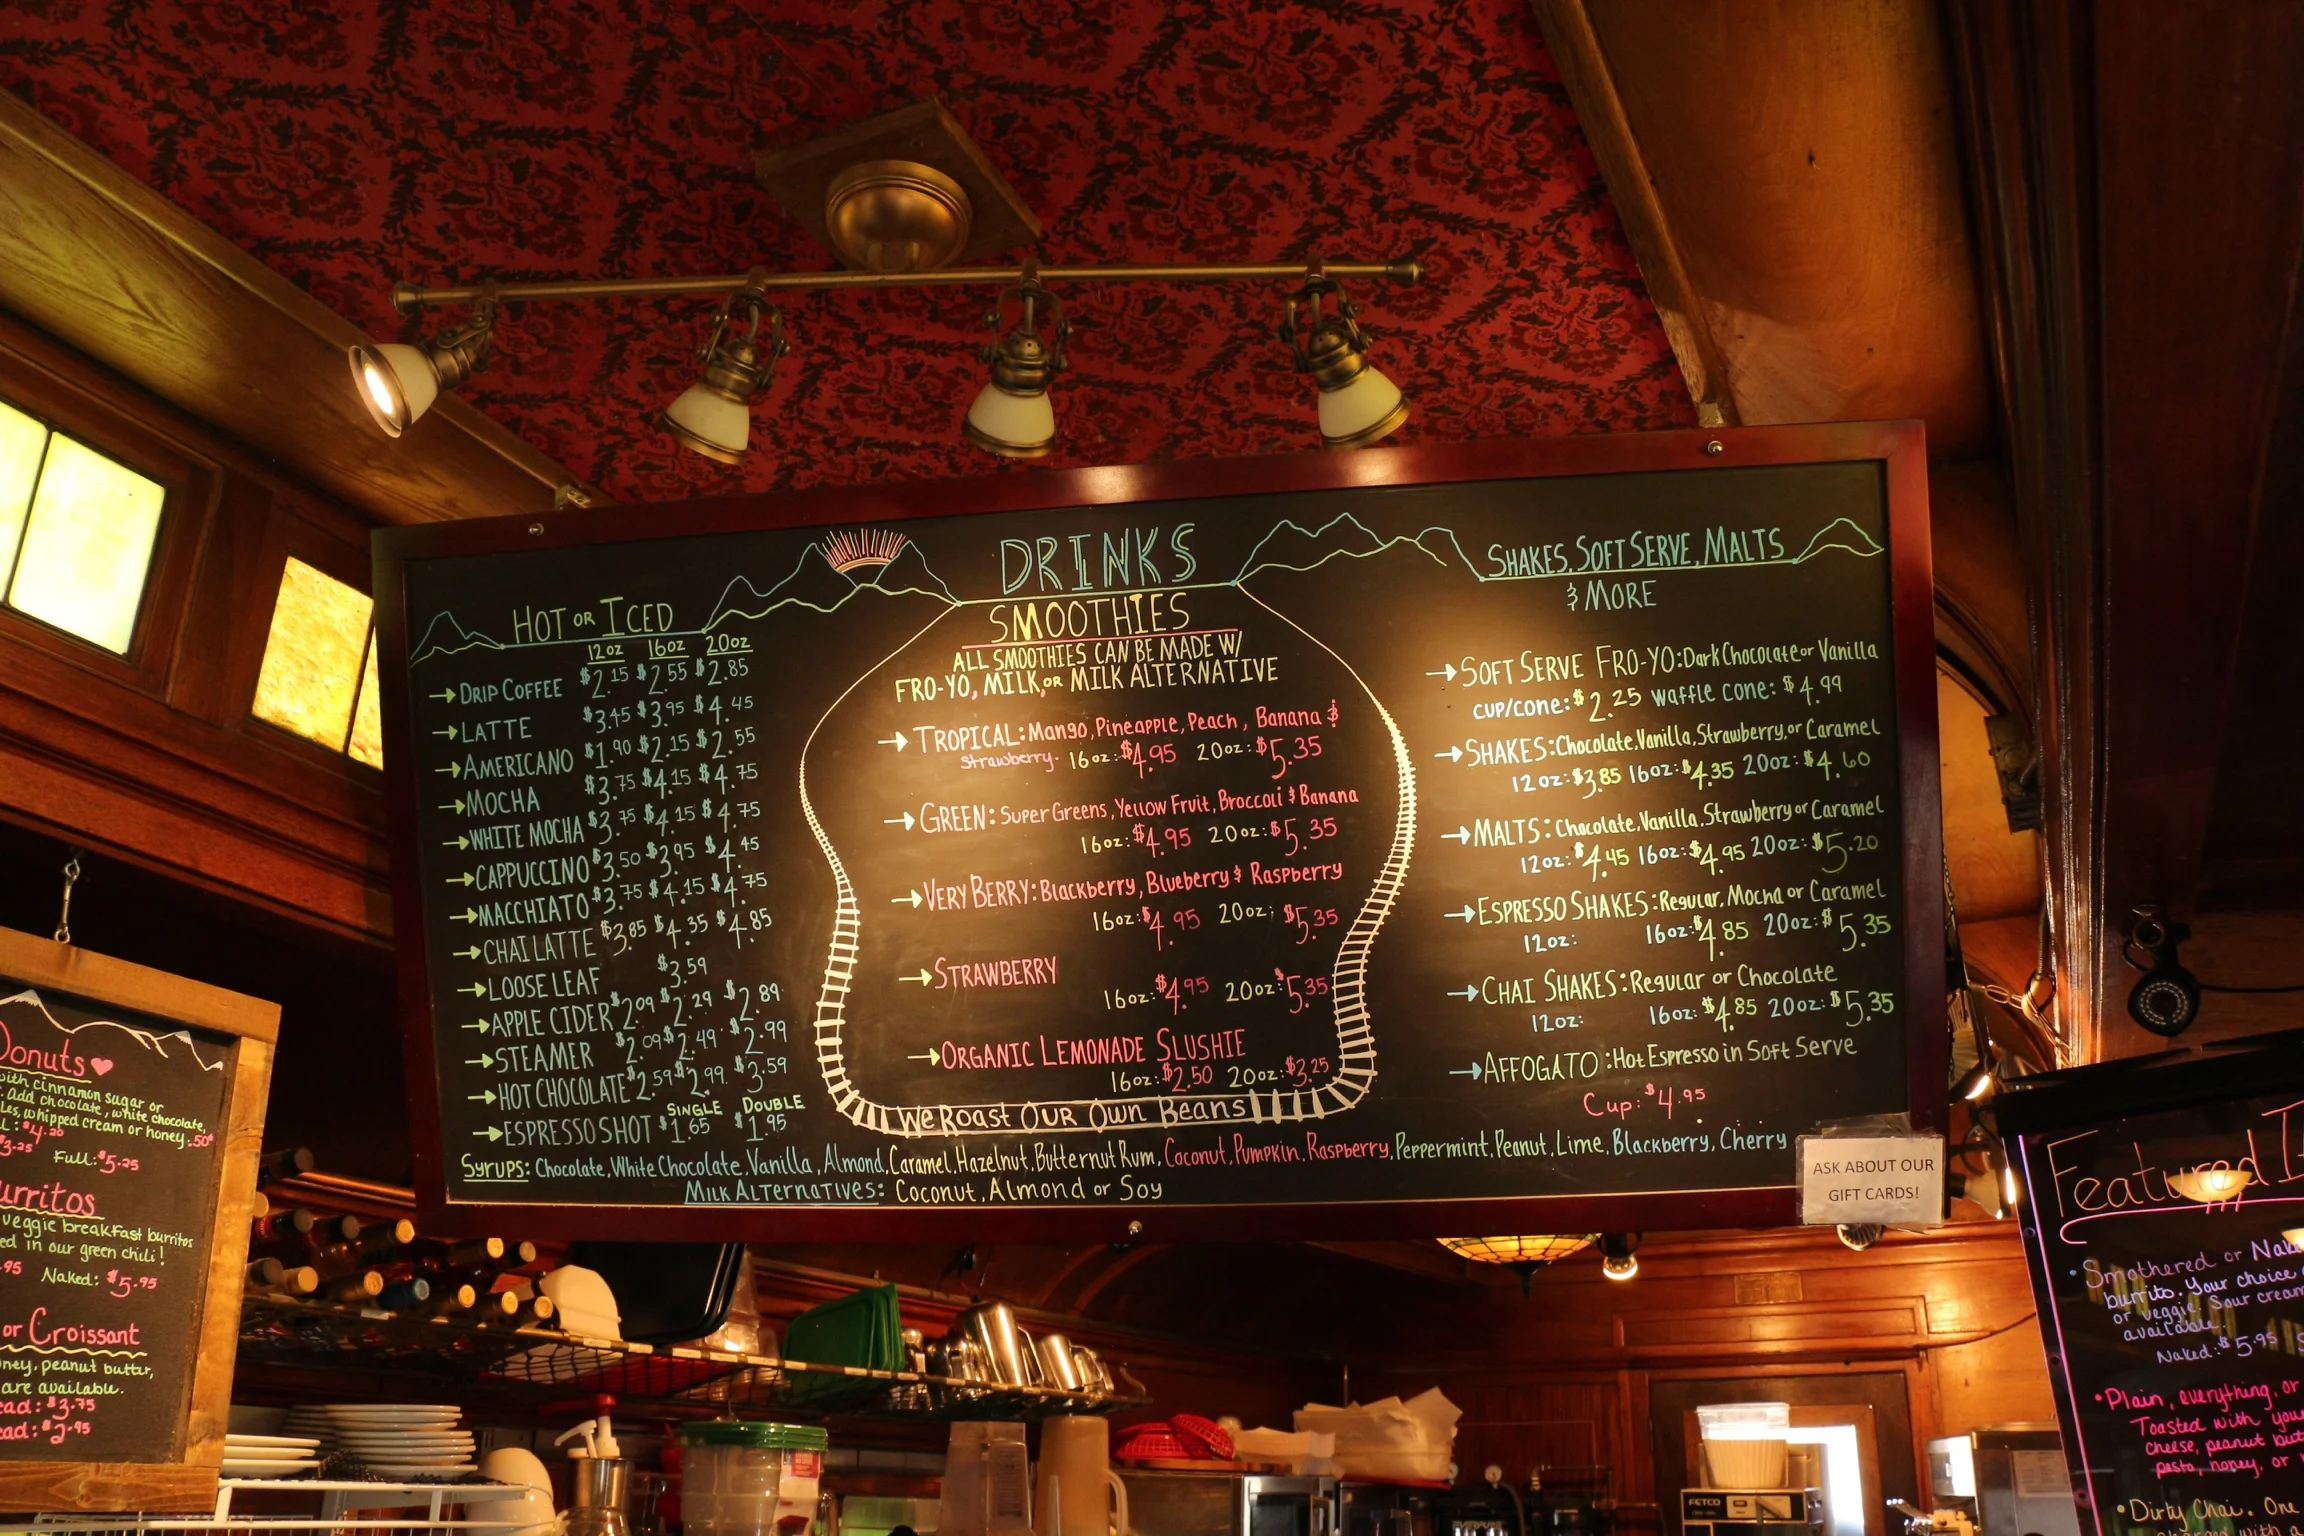 DRINKS
HOT OR ICED
12oz 16oz 20oz
→ DRIP COFFEE $2.15 $2.55 $2.85
→ LATTE $3.45 $3.95 $4.45
→ AMERICANO $1.90 $2.15 $2.55
→ MOCHA $3.75 $4.15 $4.75
→ WHITE MOCHA $3.75 $4.15 $4.75
→ CAPPUCCINO $3.50 $3.95 $4.45
→ MACCHIATO $3.75 $4.15 $4.75
→ CHAI LATTE $3.85 $4.35 $4.85
→ LOOSE LEAF $3.59
→ APPLE CIDER $2.09 $2.29 $2.89
→ STEAMER $2.09 $2.49 $2.99
→ HOT CHOCOLATE $2.59 $2.99 $3.59
SINGLE DOUBLE
→ ESPRESSO SHOT $1.65 $1.95
SMOOTHIES
ALL SMOOTHIES CAN BE MADE W/
FRO-YO, MILK, OR MILK ALTERNATIVE
→ TROPICAL: Mango, Pineapple, Peach, Banana &
Strawberry. 16oz: $4.95 20oz: $5.35
→ GREEN: Super Greens, Yellow Fruit, Broccoli & Banana
16oz: $4.95 20oz: $5.35
→ VERY BERRY: Blackberry, Blueberry & Raspberry
16oz: $4.95 20oz: $5.35
→ STRAWBERRY
16oz: $4.95 20oz: $5.35
→ ORGANIC LEMONADE SLUSHIE
16oz: $2.50 20oz: $3.25
WE ROAST OUR OWN BEANS
SHAKES, SOFT SERVE, MALTS
& MORE
→ SOFT SERVE FRO-YO: Dark Chocolate or Vanilla
CUP/CONE: $2.25 WAFFLE CONE: $4.99
→ SHAKES: Chocolate, Vanilla, Strawberry, or Caramel
12oz: $3.85 16oz: $4.35 20oz: $4.60
→ MALTS: Chocolate, Vanilla, Strawberry or Caramel
12oz: $4.45 16oz: $4.95 20oz: $5.20
→ ESPRESSO SHAKES: Regular, Mocha or Caramel
12oz: 16oz: $4.85 20oz: $5.35
→ CHAI SHAKES: Regular or Chocolate
12oz: 16oz: $4.85 20oz: $5.35
→ AFFOGATO: Hot Espresso in Soft Serve
Cup: $4.95
SYRUPS: Chocolate, White Chocolate, Vanilla, Almond, Caramel, Hazelnut, Butternut Rum, Coconut, Pumpkin, Raspberry, Peppermint, Peanut, Lime, Blackberry, Cherry
MILK ALTERNATIVES: Coconut, Almond or Soy
ASK ABOUT OUR
GIFT CARDS!
Donuts ♥
with cinnamon sugar or
add chocolate, white chocolate,
whipped cream or honey .50¢
$4.20
$3.25 Full: $5.25
veggie breakfast burritos
in our green chili!
.95 Naked: $5.95
or Croissant
peanut butter,
are available.
$3.75
$2.95
Featured
• Smothered or
burrito. Your choice
or veggie. Sour cream
available.
Naked: $5.95
• Plain, everything, or
Toasted with
cheese, peanut
pesto, honey, or
• Dirty Chai. One
FETCO